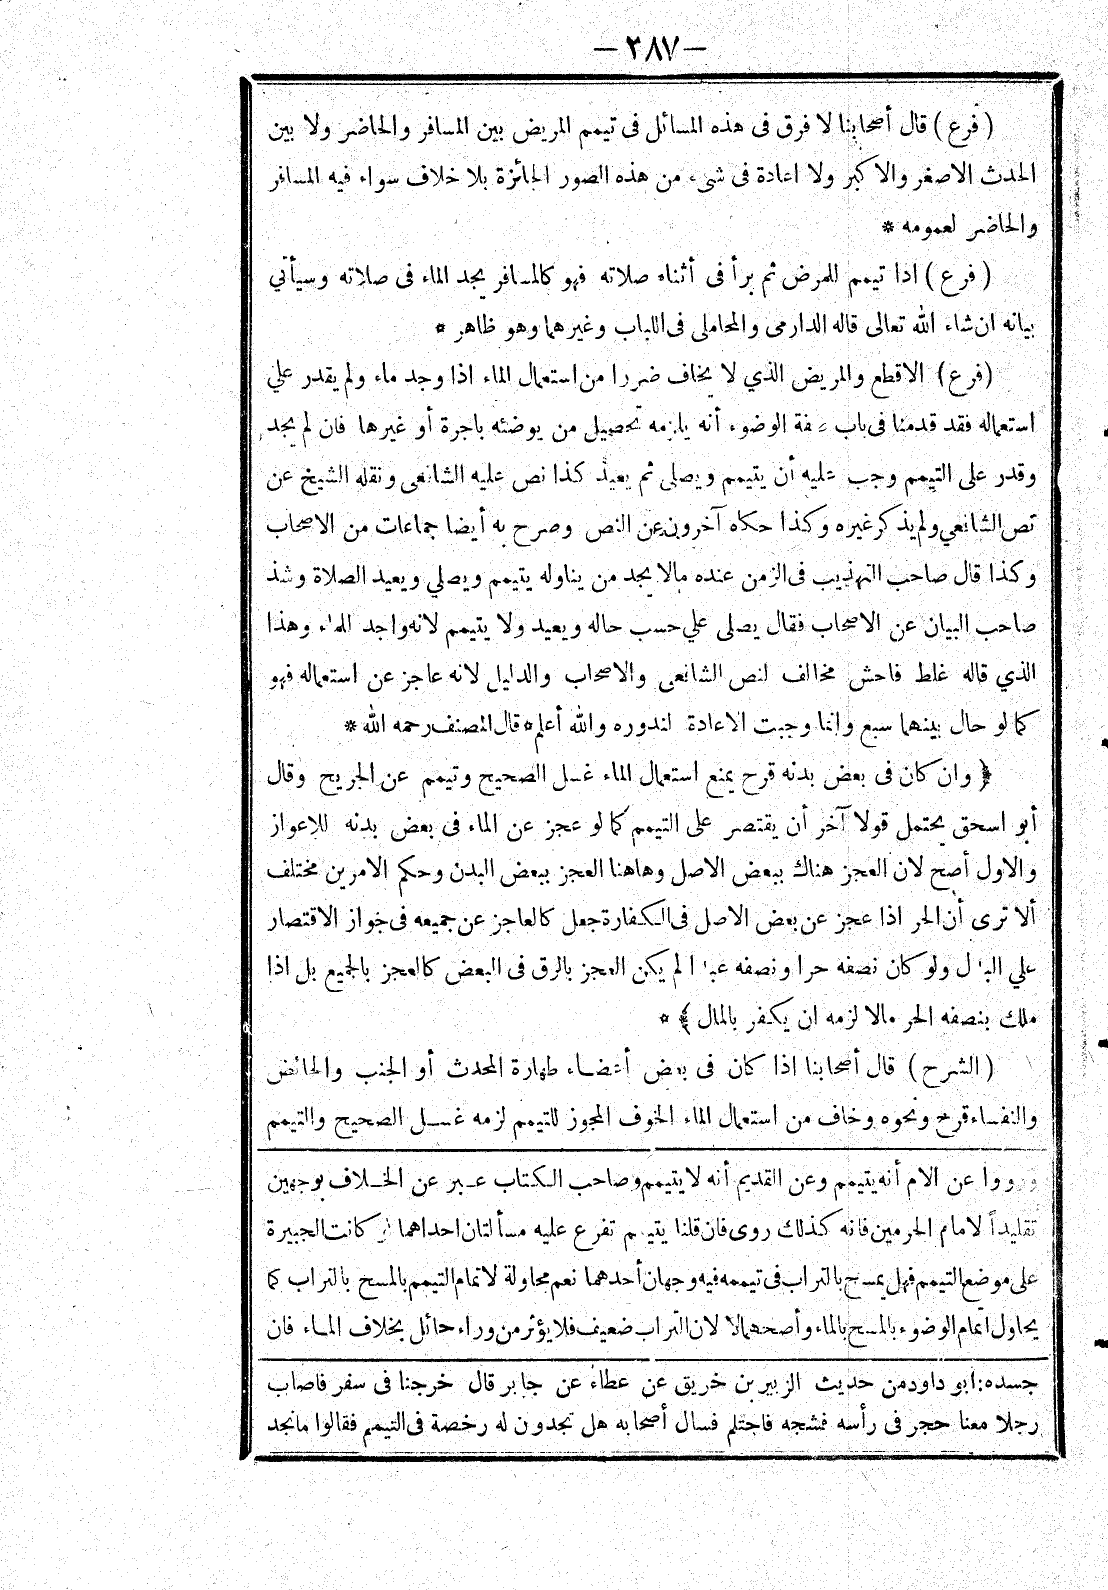 — ٢٨٧ —
( فرع ) قال أصحابنا لا فرق فى هذه المسائل فى تيمم المريض بين المسافر والحاضر ولا بين
الحدث الاصغر والاكبر ولا اعادة فى شىء من هذه الصور الجائزة بلا خلاف سواء فيه المسافر
والحاضر لعمومه *
( فرع ) اذا تيمم للمرض ثم برأ فى أثناء صلاته فهو كالمسافر يجد الماء فى صلاته وسيأتي
بيانه ان شاء الله تعالى قاله الدارمى والمحاملى فى اللباب وغيرهما وهو ظاهر *
( فرع ) الاقطع والمريض الذي لا يخاف ضررا من استعمال الماء اذا وجد ماء ولم يقدر علي
استعماله فقد قدمنا فى باب صفة الوضوء أنه يلزمه تحصيل من يوضئه باجرة أو غيرها فان لم يجد
وقدر على التيمم وجب عليه أن يتيمم ويصلى ثم يعيد كذا نص عليه الشافعى ونقله الشيخ عن
نص الشافعي ولم يذكر غيره وكذا حكاه آخرون عن النص وصرح به أيضا جماعات من الاصحاب
وكذا قال صاحب التهذيب فى الزمن عنده ما لا يجد من يناوله يتيمم ويصلي ويعيد الصلاة وشذ
صاحب البيان عن الاصحاب فقال يصلى علي حسب حاله ويعيد ولا يتيمم لانه واجد للماء وهذا
الذي قاله غلط فاحش مخالف لنص الشافعى والاصحاب والدليل لانه عاجز عن استعماله فهو
كما لو حال بينهما سبع وانما وجبت الاعادة لندوره والله أعلم * قال المصنف رحمه الله *
﴿ وان كان فى بعض بدنه قرح يمنع استعمال الماء غسل الصحيح وتيمم عن الجريح وقال
أبو اسحق يحتمل قولا آخر أن يقتصر على التيمم كما لو عجز عن الماء فى بعض بدنه للاعواز
والاول أصح لان العجز هناك ببعض الاصل وهاهنا العجز ببعض البدن وحكم الامرين مختلف
ألا ترى أن الحر اذا عجز عن بعض الاصل فى الكفارة جعل كالعاجز عن جميعه فى جواز الاقتصار
علي البدل ولو كان نصفه حرا ونصفه عبدا لم يكن العجز بالرق فى البعض كالعجز بالجميع بل اذا
ملك بنصفه الحر مالا لزمه ان يكفر بالمال ﴾ *
( الشرح ) قال أصحابنا اذا كان فى بعض أعضاء طهارة المحدث أو الجنب والحائض
والنفساء قرح ونحوه وخاف من استعمال الماء الخوف المجوز للتيمم لزمه غسل الصحيح والتيمم
ورووا عن الام أنه يتيمم وعن القديم أنه لا يتيمم وصاحب الكتاب عبر عن الخلاف بوجهين
تقليداً لامام الحرمين فانه كذلك روى فان قلنا يتيمم تفرع عليه مسألتان احداهما لو كانت الجبيرة
على موضع التيمم فهل يمسح بالتراب فى تيممه فيه وجهان أحدهما نعم محاولة لاتمام التيمم بالمسح بالتراب كما
يحاول اتمام الوضوء بالمسح بالماء وأصحهما لا لان التراب ضعيف فلا يؤثر من وراء حائل بخلاف الماء فان
جسده: ابو داود من حديث الزبير بن خريق عن عطاء عن جابر قال خرجنا فى سفر فاصاب
رجلا معنا حجر فى رأسه فشجه فاحتلم فسال أصحابه هل تجدون له رخصة فى التيمم فقالوا ما نجد